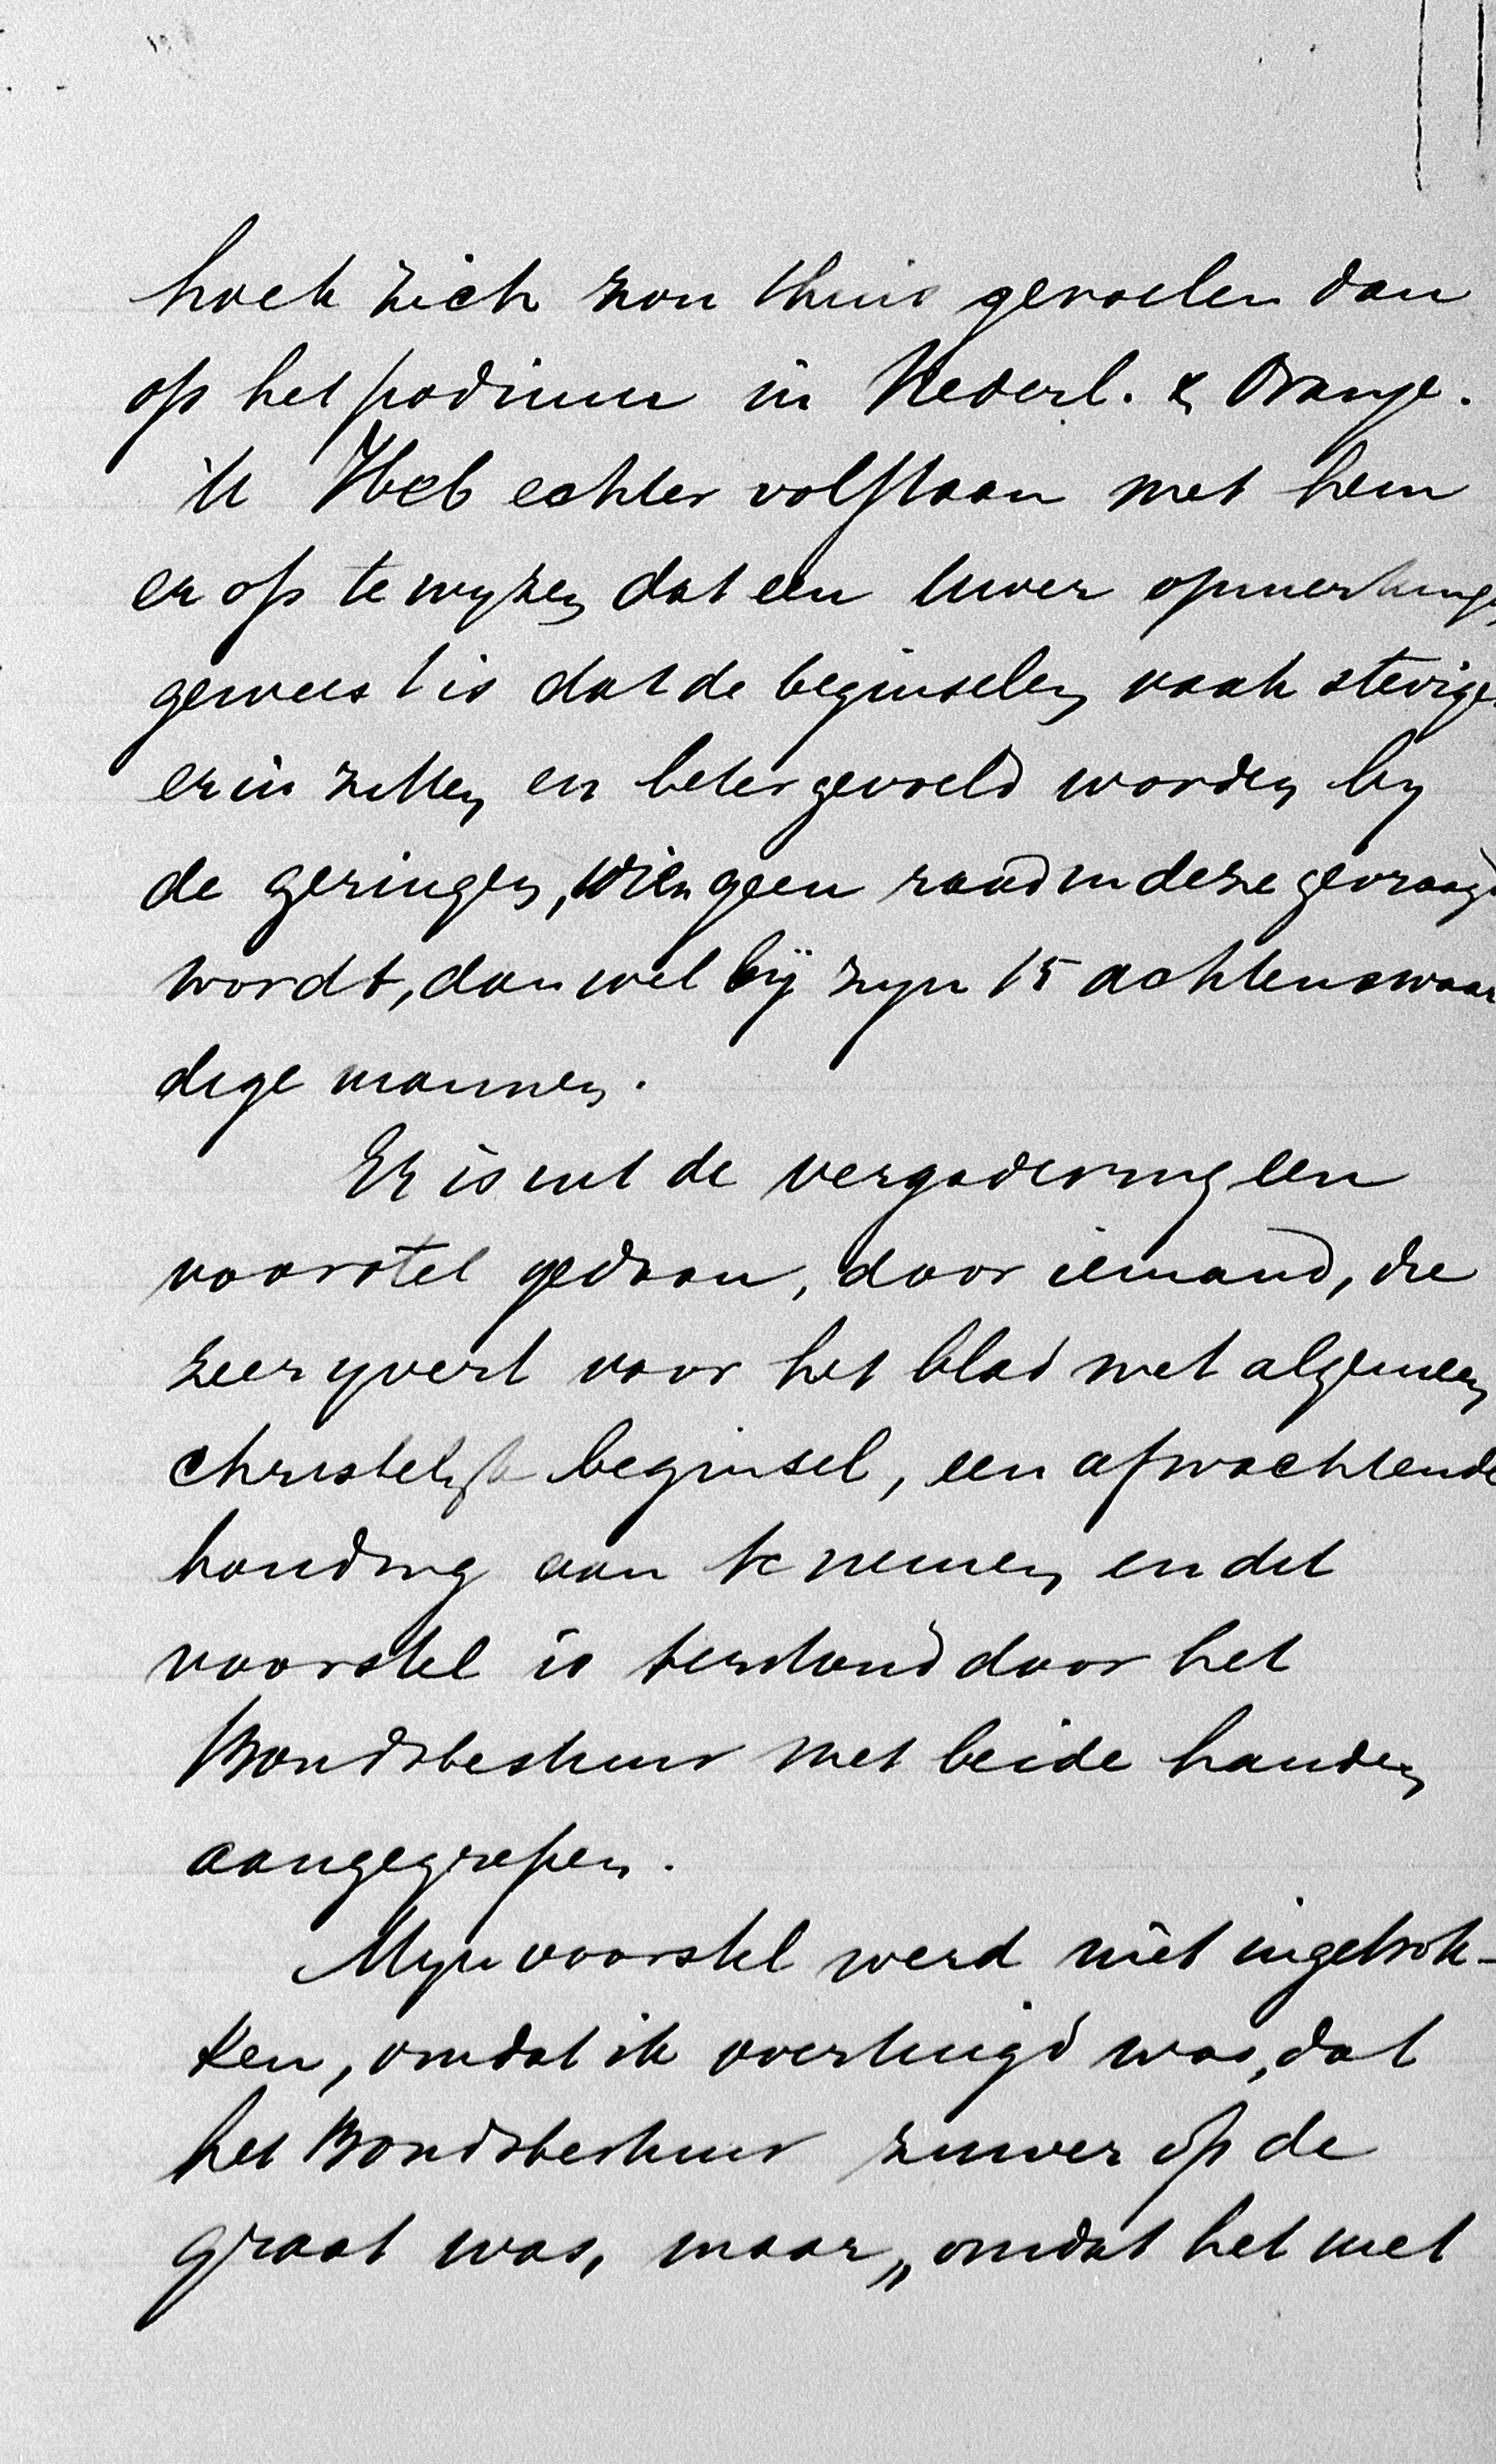 hoek zich zou thuis gevoelen dan
op het podium in Nederl. & Oranje.
ik Heb echter volstaan met hem
er op te wyzen dat een uwer opmerkingen
geweest is dat de beginselen vaak steviger
erin zitten en beter gevoeld worden by
de geringen, wien geen raad in deze gevraagd
wordt, dan wel bij zyn 15 achtenswaar
dige mannen.
Er is uit de vergadering een
voorstel gedaan, door iemand, die
zeer yvert voor het blad met algemeen
christelijk beginsel, een afwachtende
houding aan te nemen en dit
voorstel is terstond door het
Bondsbestuur met beide handen
aangegrepen.
Myn voorstel werd niet ingetrok-
ken, omdat ik overtuigd was, dat
het Bondsbestuur zuiver op de
graat was, maar „omdat het met